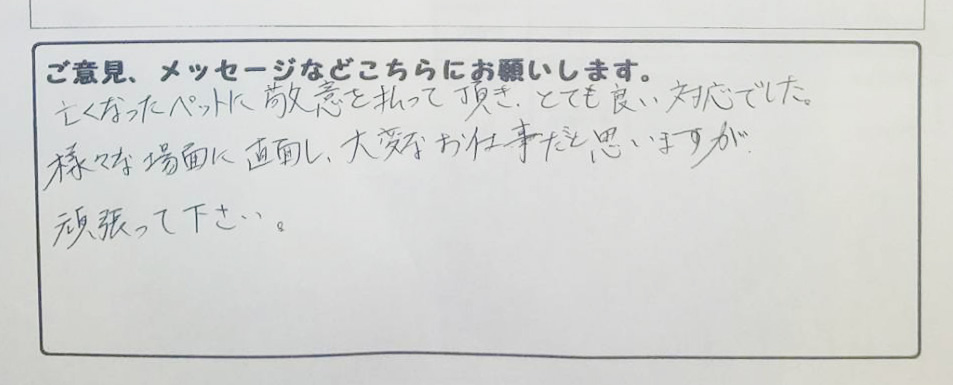 ご意見、メッセージなどこちらにお願いします。
亡くなったペットに敬意を払って頂き、とても良い対応でした。
様々な場面に直面し、大変なお仕事だと思いますが、
頑張って下さい。